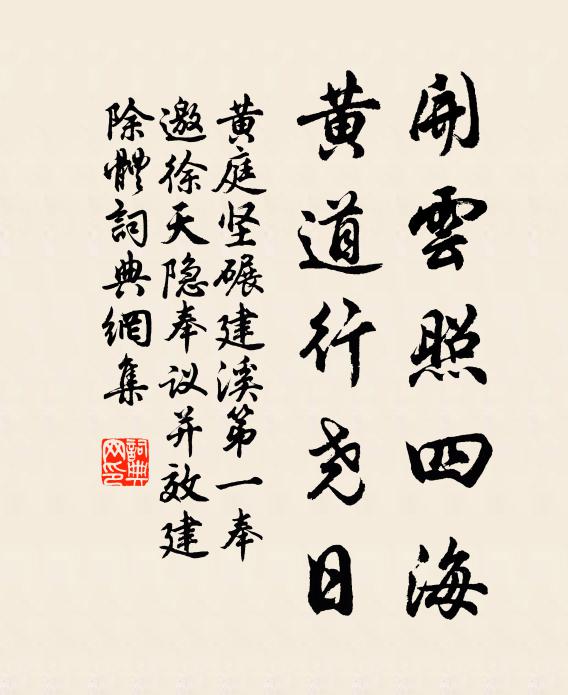 開雲照四海
黄道行尧日
黄庭坚碾建溪第一奉
邀徐天隐奉议并效建
除體詞典網集
詞典网印